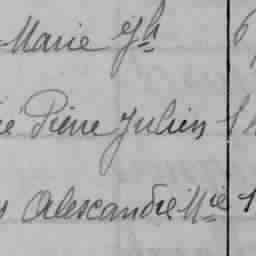 Marie Jh
Pierre Julien
Alexandre Mie